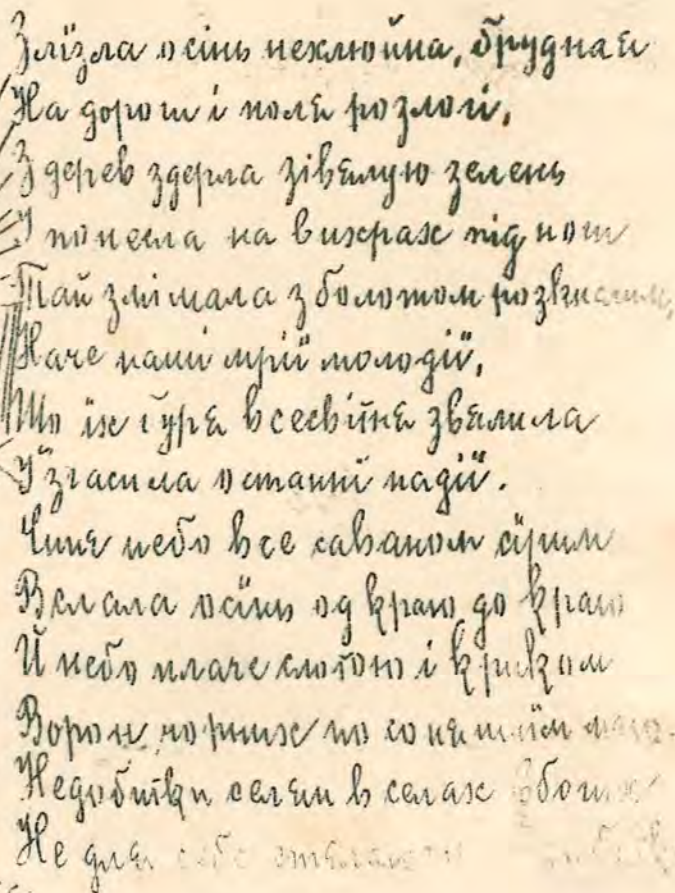 Злїзла осінь неклюйна, бруднає
На дороги і поля розлогі,
З дерев здерла зівялую зелень
І понесла на вихрах під ноги
Тай змішала з болотом розкислим,
Наче наші мрії молодії,
Що їх буря всесвітня звялила
І згасила останнї надїї.
Синє небо все саваном сїрим
Вслала осїнь од краю до краю
Й небо плаче слотою і криком
Ворон чорних по сонешнїм
Недобитки селян в селах вбогих
Не для себе